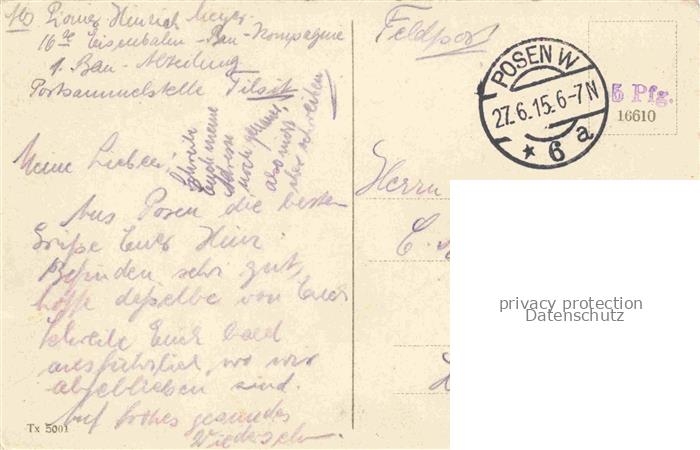 Pionier Heinrich Meyer
16te Eisenbahn-Bau-Kompagnie
1. Bau-Abteilung
Postsammelstelle Tilsit
Schreib
Euch meine
Adresse
noch genau,
also
aber schreiben
Meine Lieben,
Aus Posen die besten
Grüße Euer Hein.
Befinden sehr gut,
hoffe dasselbe von Euch
Schreibe Euch bald
ausführlich, wo wir
abgeblieben sind.
Auf frohes gesundes
Wiedersehn.
Tx 5001
Feldpost
POSEN W
27.6.15.6-7N
* 6 a
5 Pfg.
16610
Herrn
C.
privacy protection
Datenschutz